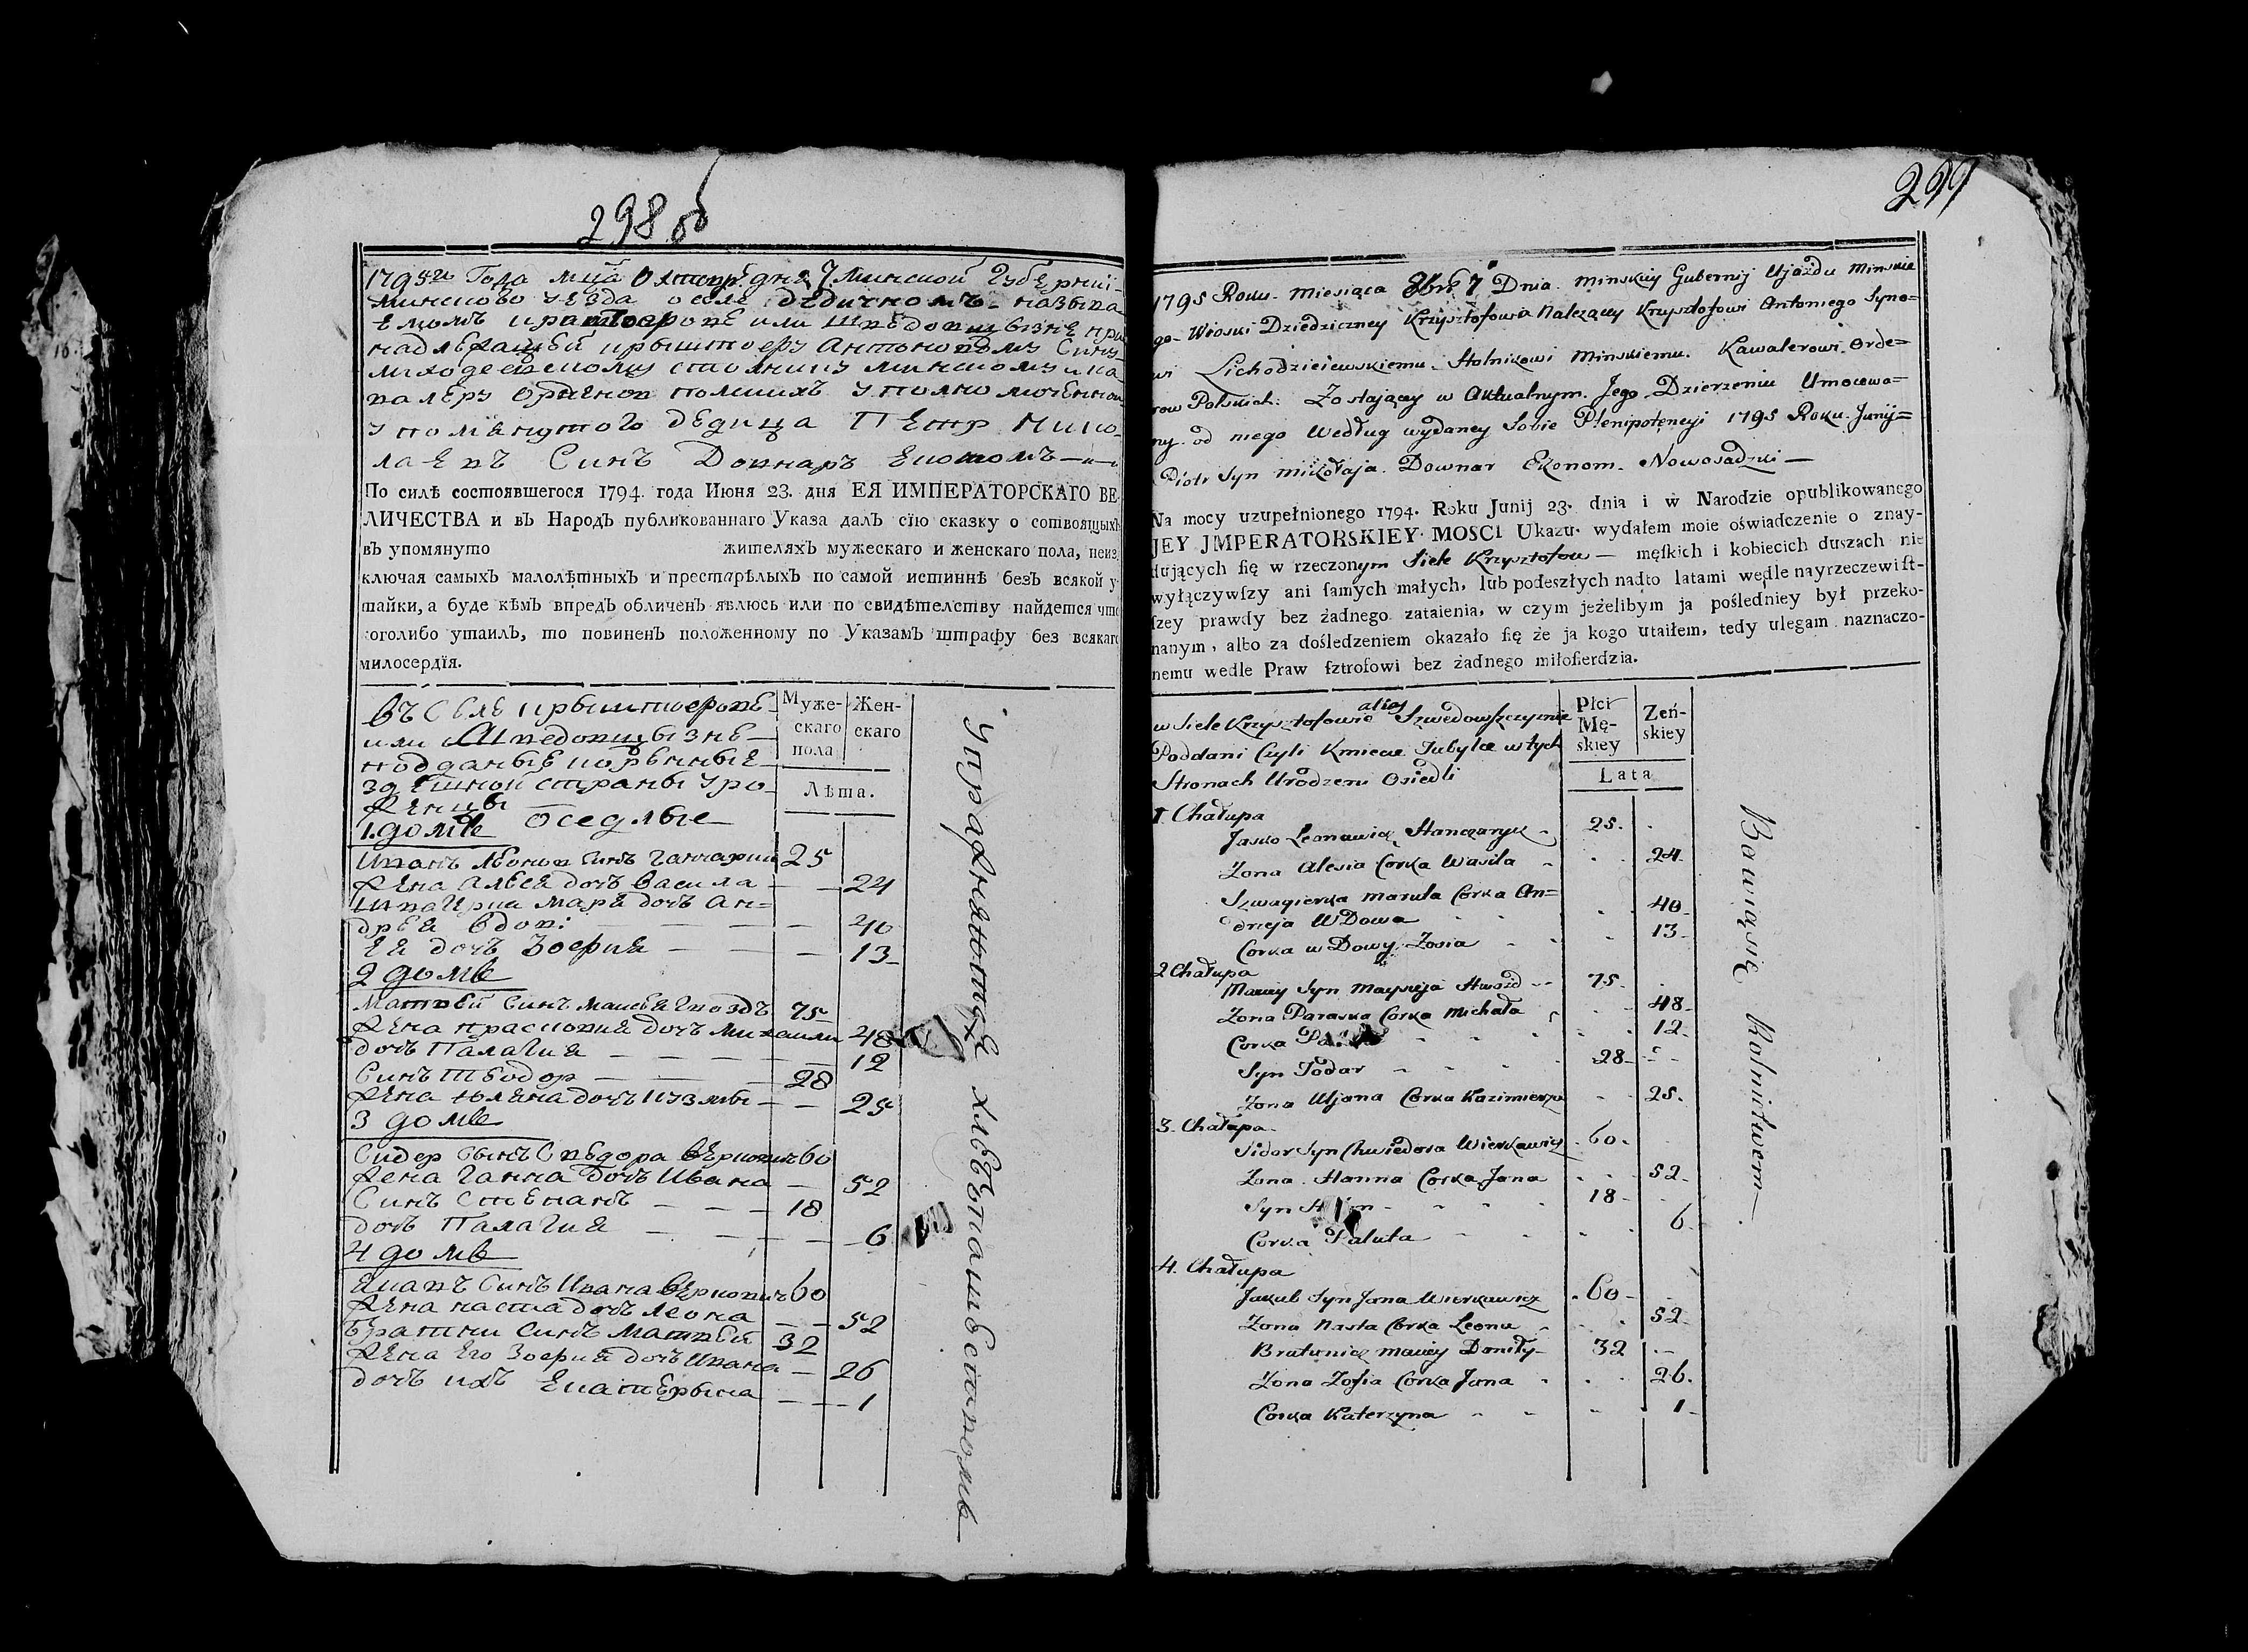 298 об
1795го Года мца Октяб дня 7 Минской Губернїи
Минского уезда о селе дедичномъ называ
емомъ Крыштофове или Шведовщызне при
надлежащей Крыштофу Антоновому Сину
Лиходеевскому столнику Минскому и ка
валеру Орденов полших
упомянутого дедица Петр Нико
лаевъ Синъ Довнаръ Економъ
По силѣ состоявшегося 1794. года Июня 23. дня ЕЯ ИМПЕРАТОРСКАГО ВЕ
ЛИЧЕСТВА и въ Народъ публикованнаго Указа далъ сїю сказку о сотвоящыхъ
въ упомянуто жителяхъ мужескаго и женскаго пола, неиз
ключая самыхъ малолѣтныхъ и престарѣлыхъ по самой истиннѣ безъ всякой у
тайки, а буде кѣмъ впредъ обличенъ явлюсь или по свидѣтелству найдется что
коголибо утаилъ, то повиненъ положенному по Указамъ штрафу без всякаго
милосердїя.
въ Селе Крыштофове
или Шведовщызне
подданые коренные
здешной страны уро
женцы оседлые
Муже-
скаго
пола
Жен-
скаго
Лѣта.
1. доме
Иванъ Леонов Синъ Ганчарик 25
Жена Алеся дочъ Васила — — 24
Шваґрка Мара дочъ Ан=
дрея вдов: — 40
Ея дочъ Зофия — — 13
2 доме
Матвей Синъ Мацея Гвоздъ 75
Жена Прасковия дочъ Михаили 48
дочъ Палагия — — 12
Синъ Тводор — 28
Жена Юляна дочъ Кузмы — 25
3 доме
Сидер Сынъ Сведора Веркович 60
Жена Ганна дочъ Ивана — 52
Синъ Степанъ — — 18
дочъ Палагия — — 6
4 доме
Якавъ Синъ Ивана Веркович 60
Жена наста дочъ Леона — 52
Братни Синъ Матвей 32
Жена Его Зофия дочъ Ивана — 26
дочъ ихъ Екатерына — 1
Упражняютця хлебопашеством
299
1795 Roku. Miesiąca 8bra 7 Dnia. Minskiey Gubernij Ujazdu Minskie
go Wioski Dziedziczney Krzysztofowa Nalezącey Krzysztofowi Antoniego Syno=
wi Lichodzieiewskiemu Stolnikowi Minskiemu. Kawalerowi Orde=
row Polskich. Zostający w Aktualnym Jego Dzierzeniu Umocowa=
ny od niego Według wydaney Sobie Plenipotencyi 1795 Roku Junij=
Piotr Syn Mikołaja Downar Ekonom. Nowosadzki —
Na mocy uzupełnionego 1794. Roku Junij 23. dnia i w Narodzie opublikowanego
JEY JMPERATORSKIEY MOSCI Ukazu wydałem moie oświadczenie o znay-
dujących ſię w rzeczonym Siele Krzysztofow — męſkich i kobiecich duszach nie
wyłączywſzy ani ſamych małych, lub podeszłych nadto latami wedle nayrzeczewiſt-
ſzey prawdy bez żadnego zataienia, w czym jeżelibym ja pośledniey był przeko-
nanym, albo za dośledzeniem okazało ſię że ja kogo utaiłem, tedy ulegam naznaczo-
nemu wedle Praw ſztrofowi bez żadnego miłoſierdzia.
alias
w Siele Krzysztofowie Szwedowszczyznie
Poddani Czyli Kmiecie Tubylce w tych
Stronach Urodzeni Osiedli
Płci
Mę-
skiey
Zeń-
skiey
Lata
1. Chałupa
Jasko Leonawicz Hanczaryk 25.
Zona Alesia Corka Wasila 24
Szwagierka Maruta Corka An=
drieja Wdowa 40
Corka wDowy Zosia 13
2 Chałupa
Maciey Syn Macyieja Hwozd 75
Zona Paraska Corka Michała 48
Corka 12
Syn Todar 28
Zona Uljana Corka Kazimierza 25.
3. Chałupa
Sidor Syn Chwiedora Wierkawicz 60
Zona Hanna Corka Jana 52
Syn 18
Corka Paluta 6
4. Chałupa
Jakub Syn Jana Wierkawicz 60
Zona Nasta Corka Leona 52
Bratanicz Maciey Daniły 32
Zona Zofia Corka Jana 26.
Corka Katerzyna 1
Bawią się Rolnictwem